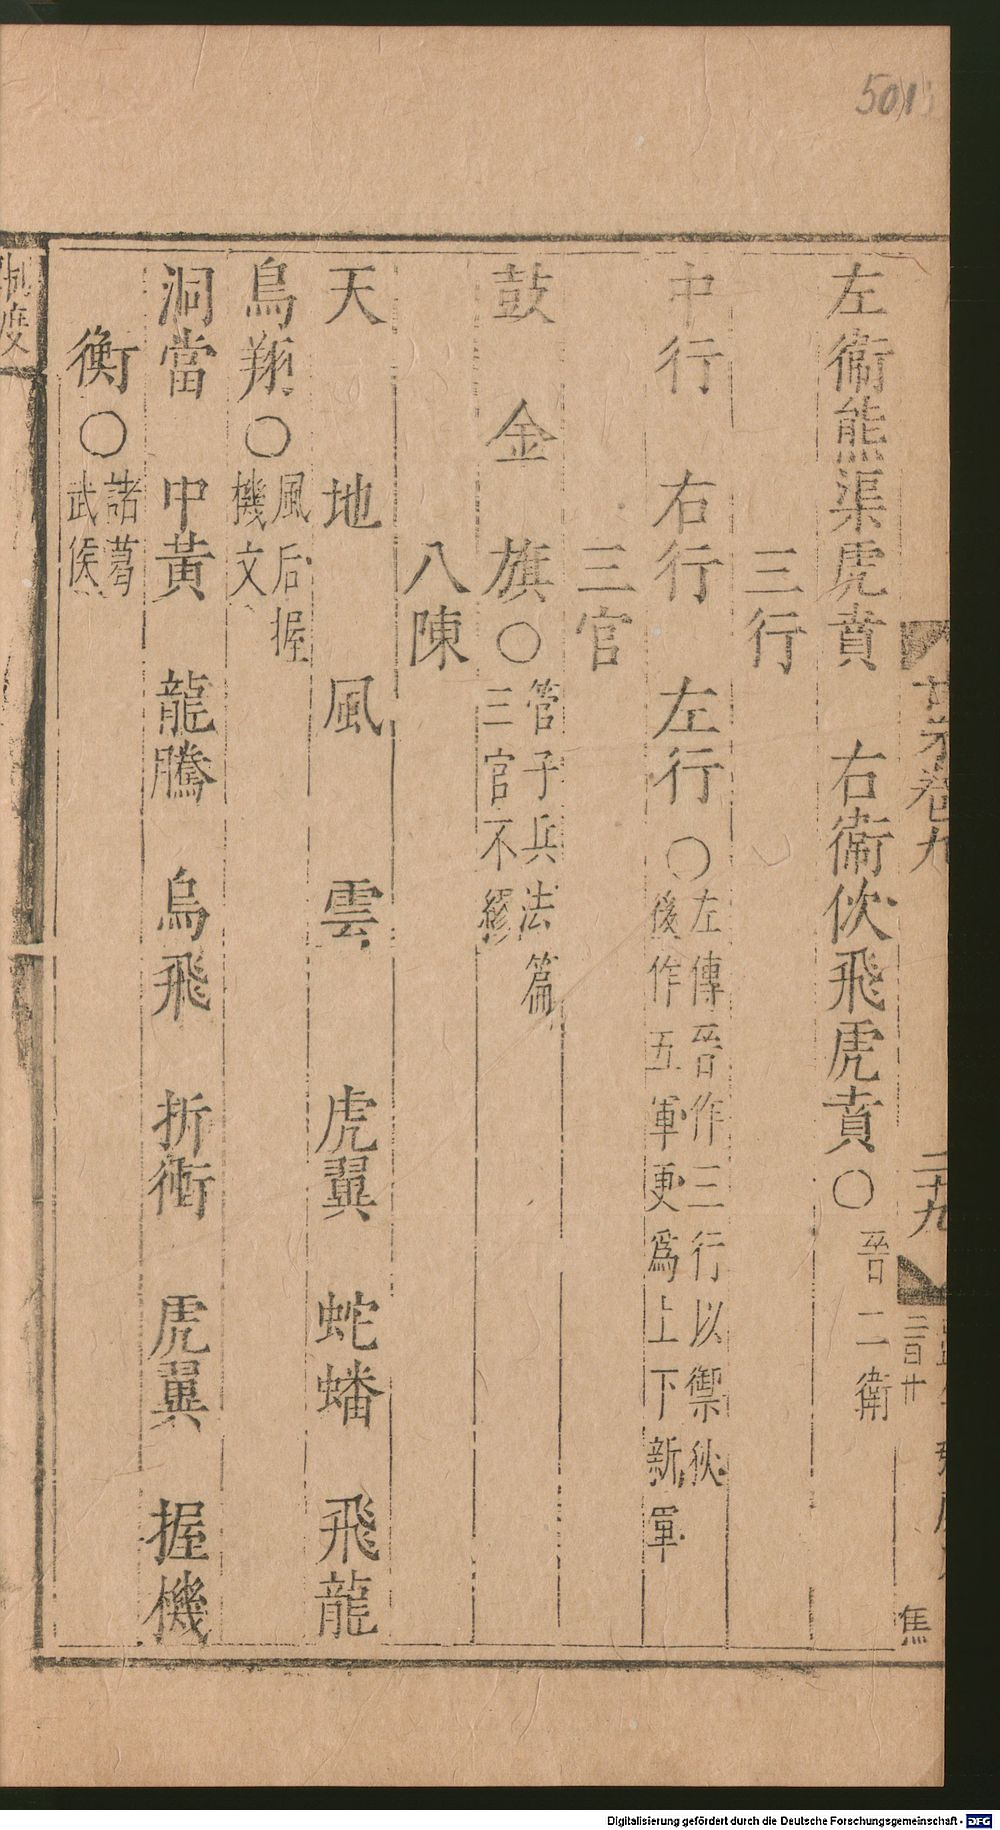 501
左衛熊渠虎賁　右衛佽飛虎賁○晉二衛
三行
中行　右行　左行○左傳晉作三行以禦狄後作五軍更爲上下新軍
三官
鼓　金　旗○管子兵法篇三官不繆
八陳
天　地　風　雲　虎翼　蛇蟠　飛龍
鳥翔○風后握機文
洞當　中黃　龍騰　鳥飛　折衝　虎翼　握機
衡○諸葛武侯
制度
卷九
二十九
三百廿
焦
Digitalisierung gefördert durch die Deutsche Forschungsgemeinschaft - DFG